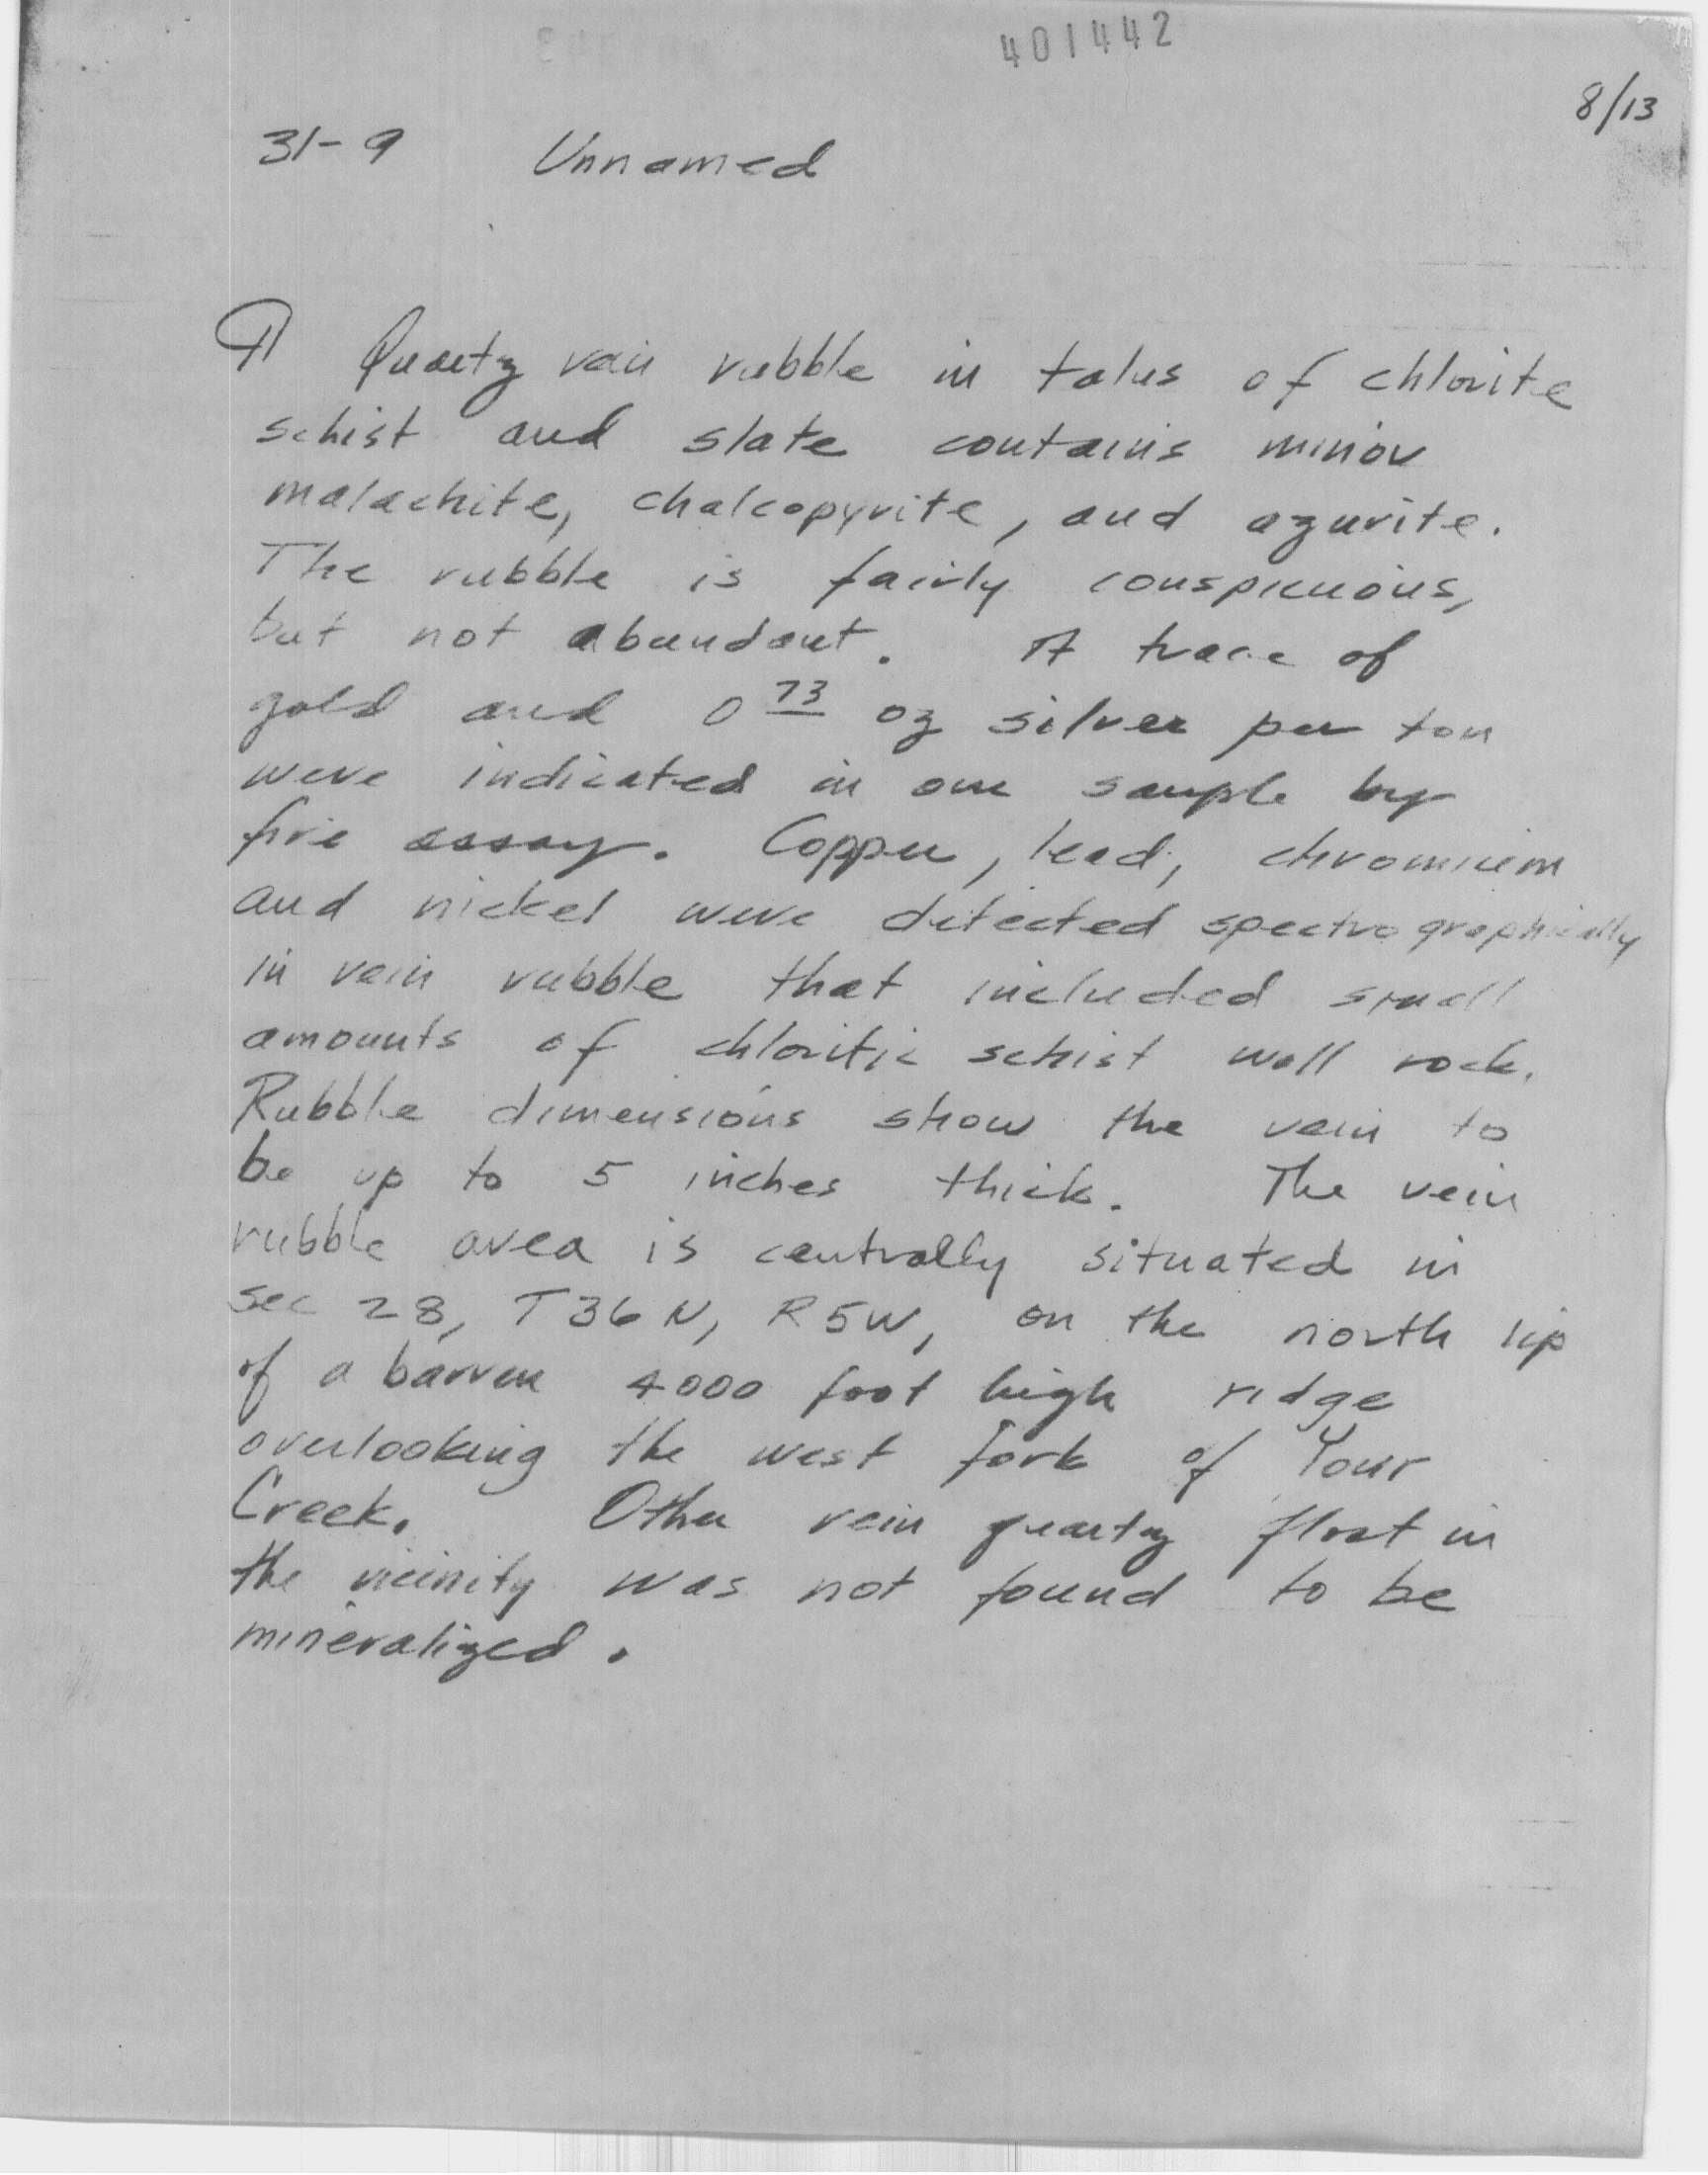 401442
8/13
31-9 Unnamed
¶ Quartz vein rubble in talus of chlorite
schist and slate contains minor
malachite, chalcopyrite, and azurite.
The rubble is fairly conspicuous,
but not abundant. A trace of
gold and 0 73 oz silver per ton
were indicated in one sample by
fire assay. Copper, lead, chromium
and nickel were detected spectrographically
in vein rubble that included small
amounts of chloritic schist wall rock.
Rubble dimensions show the vein to
be up to 5 inches thick. The vein
rubble area is centrally situated in
sec 28, T36N, R5W, on the north lip
of a barren 4000 foot high ridge
overlooking the west fork of Your
Creek. Other vein quartz float in
the vicinity was not found to be
mineralized.